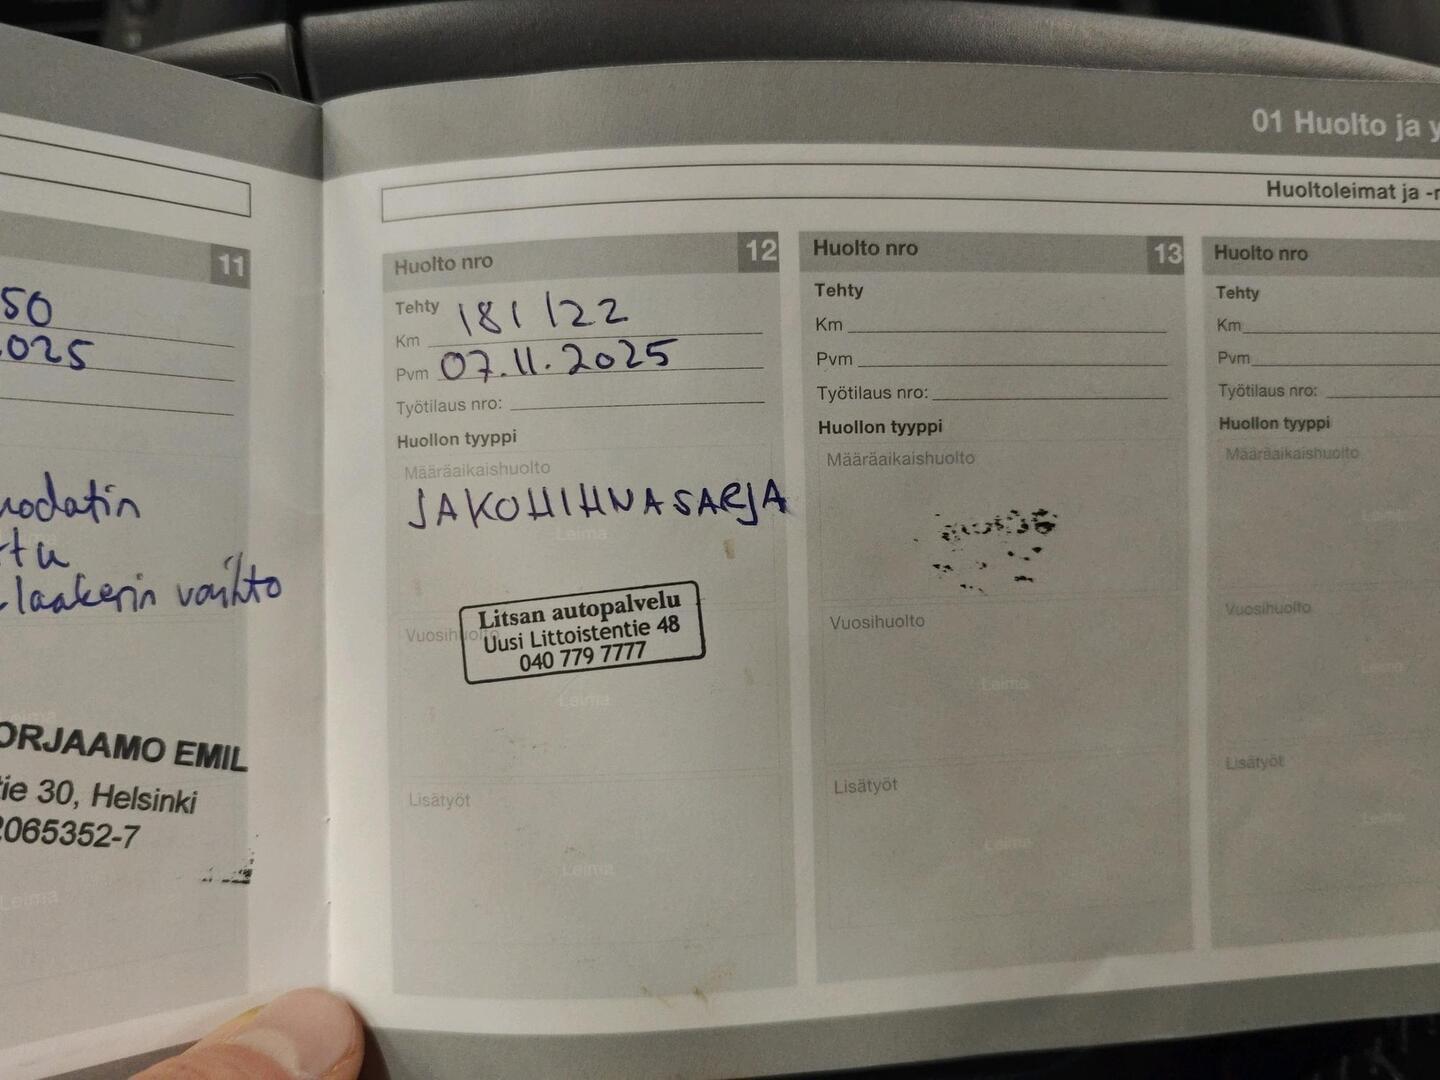 01 Huolto ja y
Huoltoleimat ja -r
11
50
.025
uodatin
laakerin vaihto
ORJAAMO EMIL
tie 30, Helsinki
2065352-7
Leima
Huolto nro 12
Tehty
Km 181 122
Pvm 07.11.2025
Työtilaus nro:
Huollon tyyppi
Määräaikaishuolto
JAKOHIHNASARJA
Leima
Litsan autopalvelu
Uusi Littoistentie 48
040 779 7777
Vuosihuolto
Leima
Lisätyöt
Leima
Huolto nro 13
Tehty
Km
Pvm
Työtilaus nro:
Huollon tyyppi
Määräaikaishuolto
Vuosihuolto
Leima
Lisätyöt
Leima
Huolto nro
Tehty
Km
Pvm
Työtilaus nro:
Huollon tyyppi
Määräaikaishuolto
Leima
Vuosihuolto
Leima
Lisätyöt
Leima